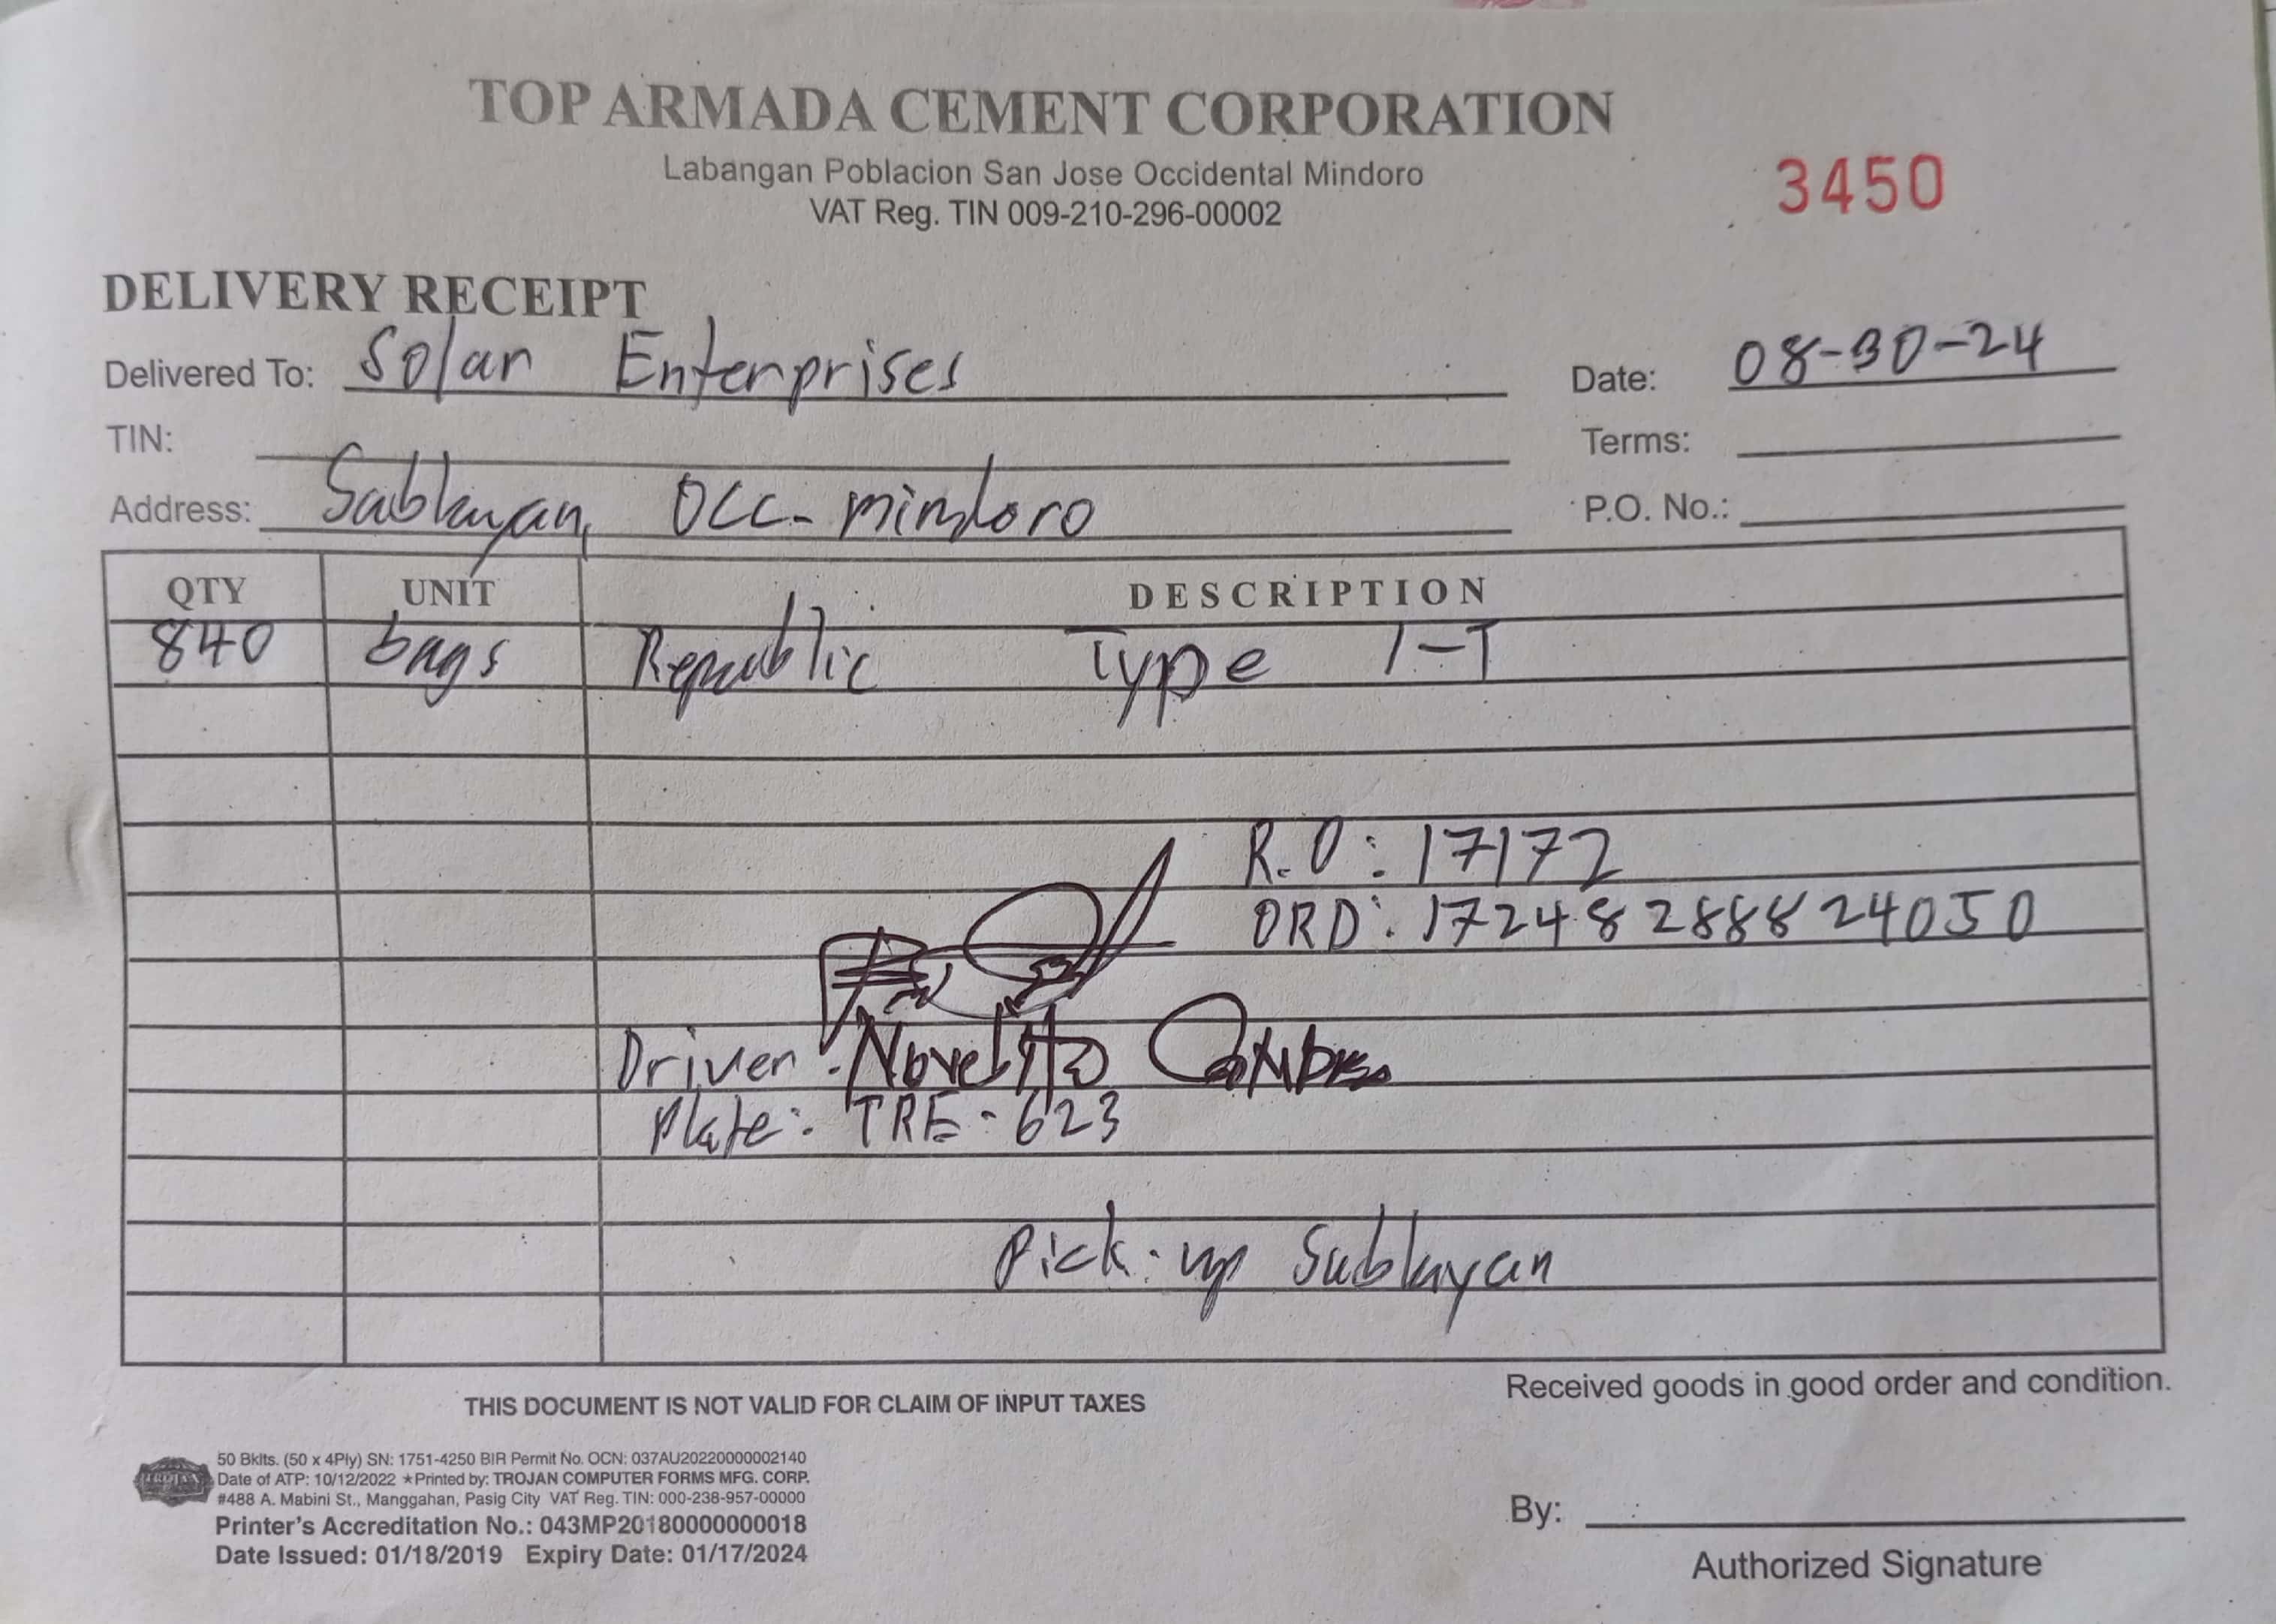 TOP ARMADA CEMENT CORPORATION
Labangan Poblacion San Jose Occidental Mindoro
VAT Reg. TIN 009-210-296-00002
3450
DELIVERY RECEIPT
Delivered To: Solar Enterprises
Date: 08-30-24
TIN:
Terms:
Address: Sablayan, Occ. mindoro
P.O. No.:
QTY UNIT DESCRIPTION
840 bags Republic Type 1-T
R.O: 17172
ORD: 1724828882 4050
Driver: Novelito
Plate: TRE-623
Pick-up Sablayan
THIS DOCUMENT IS NOT VALID FOR CLAIM OF INPUT TAXES
Received goods in good order and condition.
TROJAN
50 Bklts. (50 x 4Ply) SN: 1751-4250 BIR Permit No. OCN: 037AU20220000002140
Date of ATP: 10/12/2022 ★Printed by: TROJAN COMPUTER FORMS MFG. CORP.
#488 A. Mabini St., Manggahan, Pasig City VAT Reg. TIN: 000-238-957-00000
Printer's Accreditation No.: 043MP20180000000018
Date Issued: 01/18/2019 Expiry Date: 01/17/2024
By:
Authorized Signature